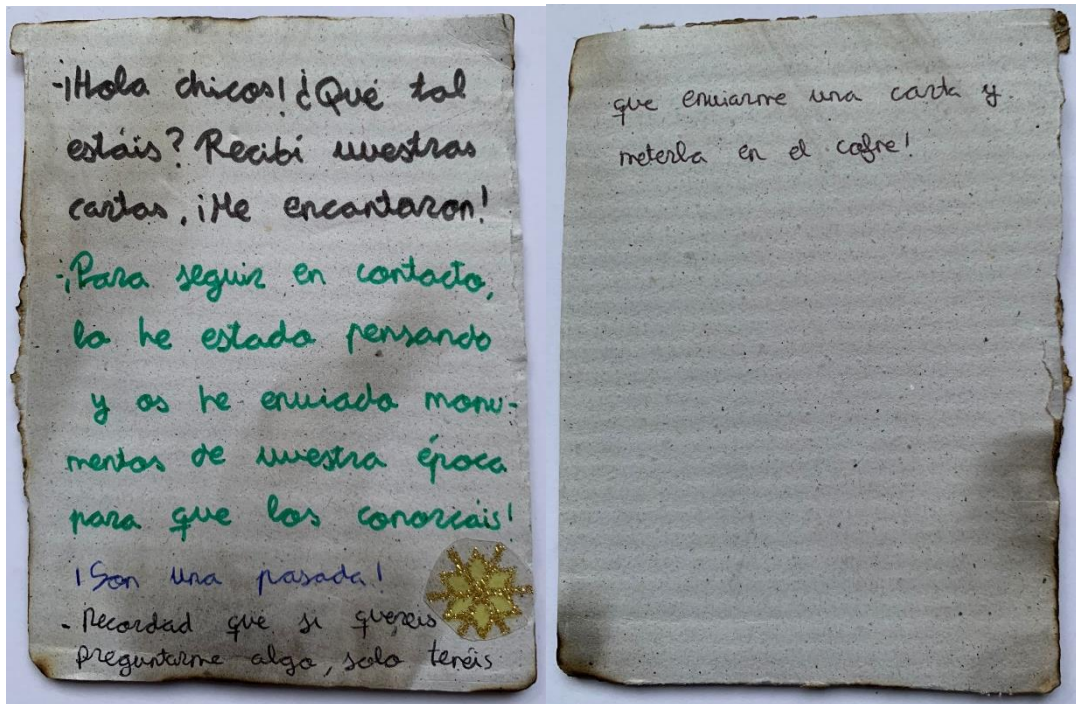 -¡Hola chicos! ¿Qué tal
estáis? Recibí vuestras
cartas, ¡Me encantaron!
-¡Para seguir en contacto,
lo he estado pensando
y os he enviado monu-
mentos de nuestra época
para que los conozcáis!
¡Son una pasada!
- Recordad que si queréis
preguntarme algo, solo tenéis
que enviarme una carta y
meterla en el cofre!